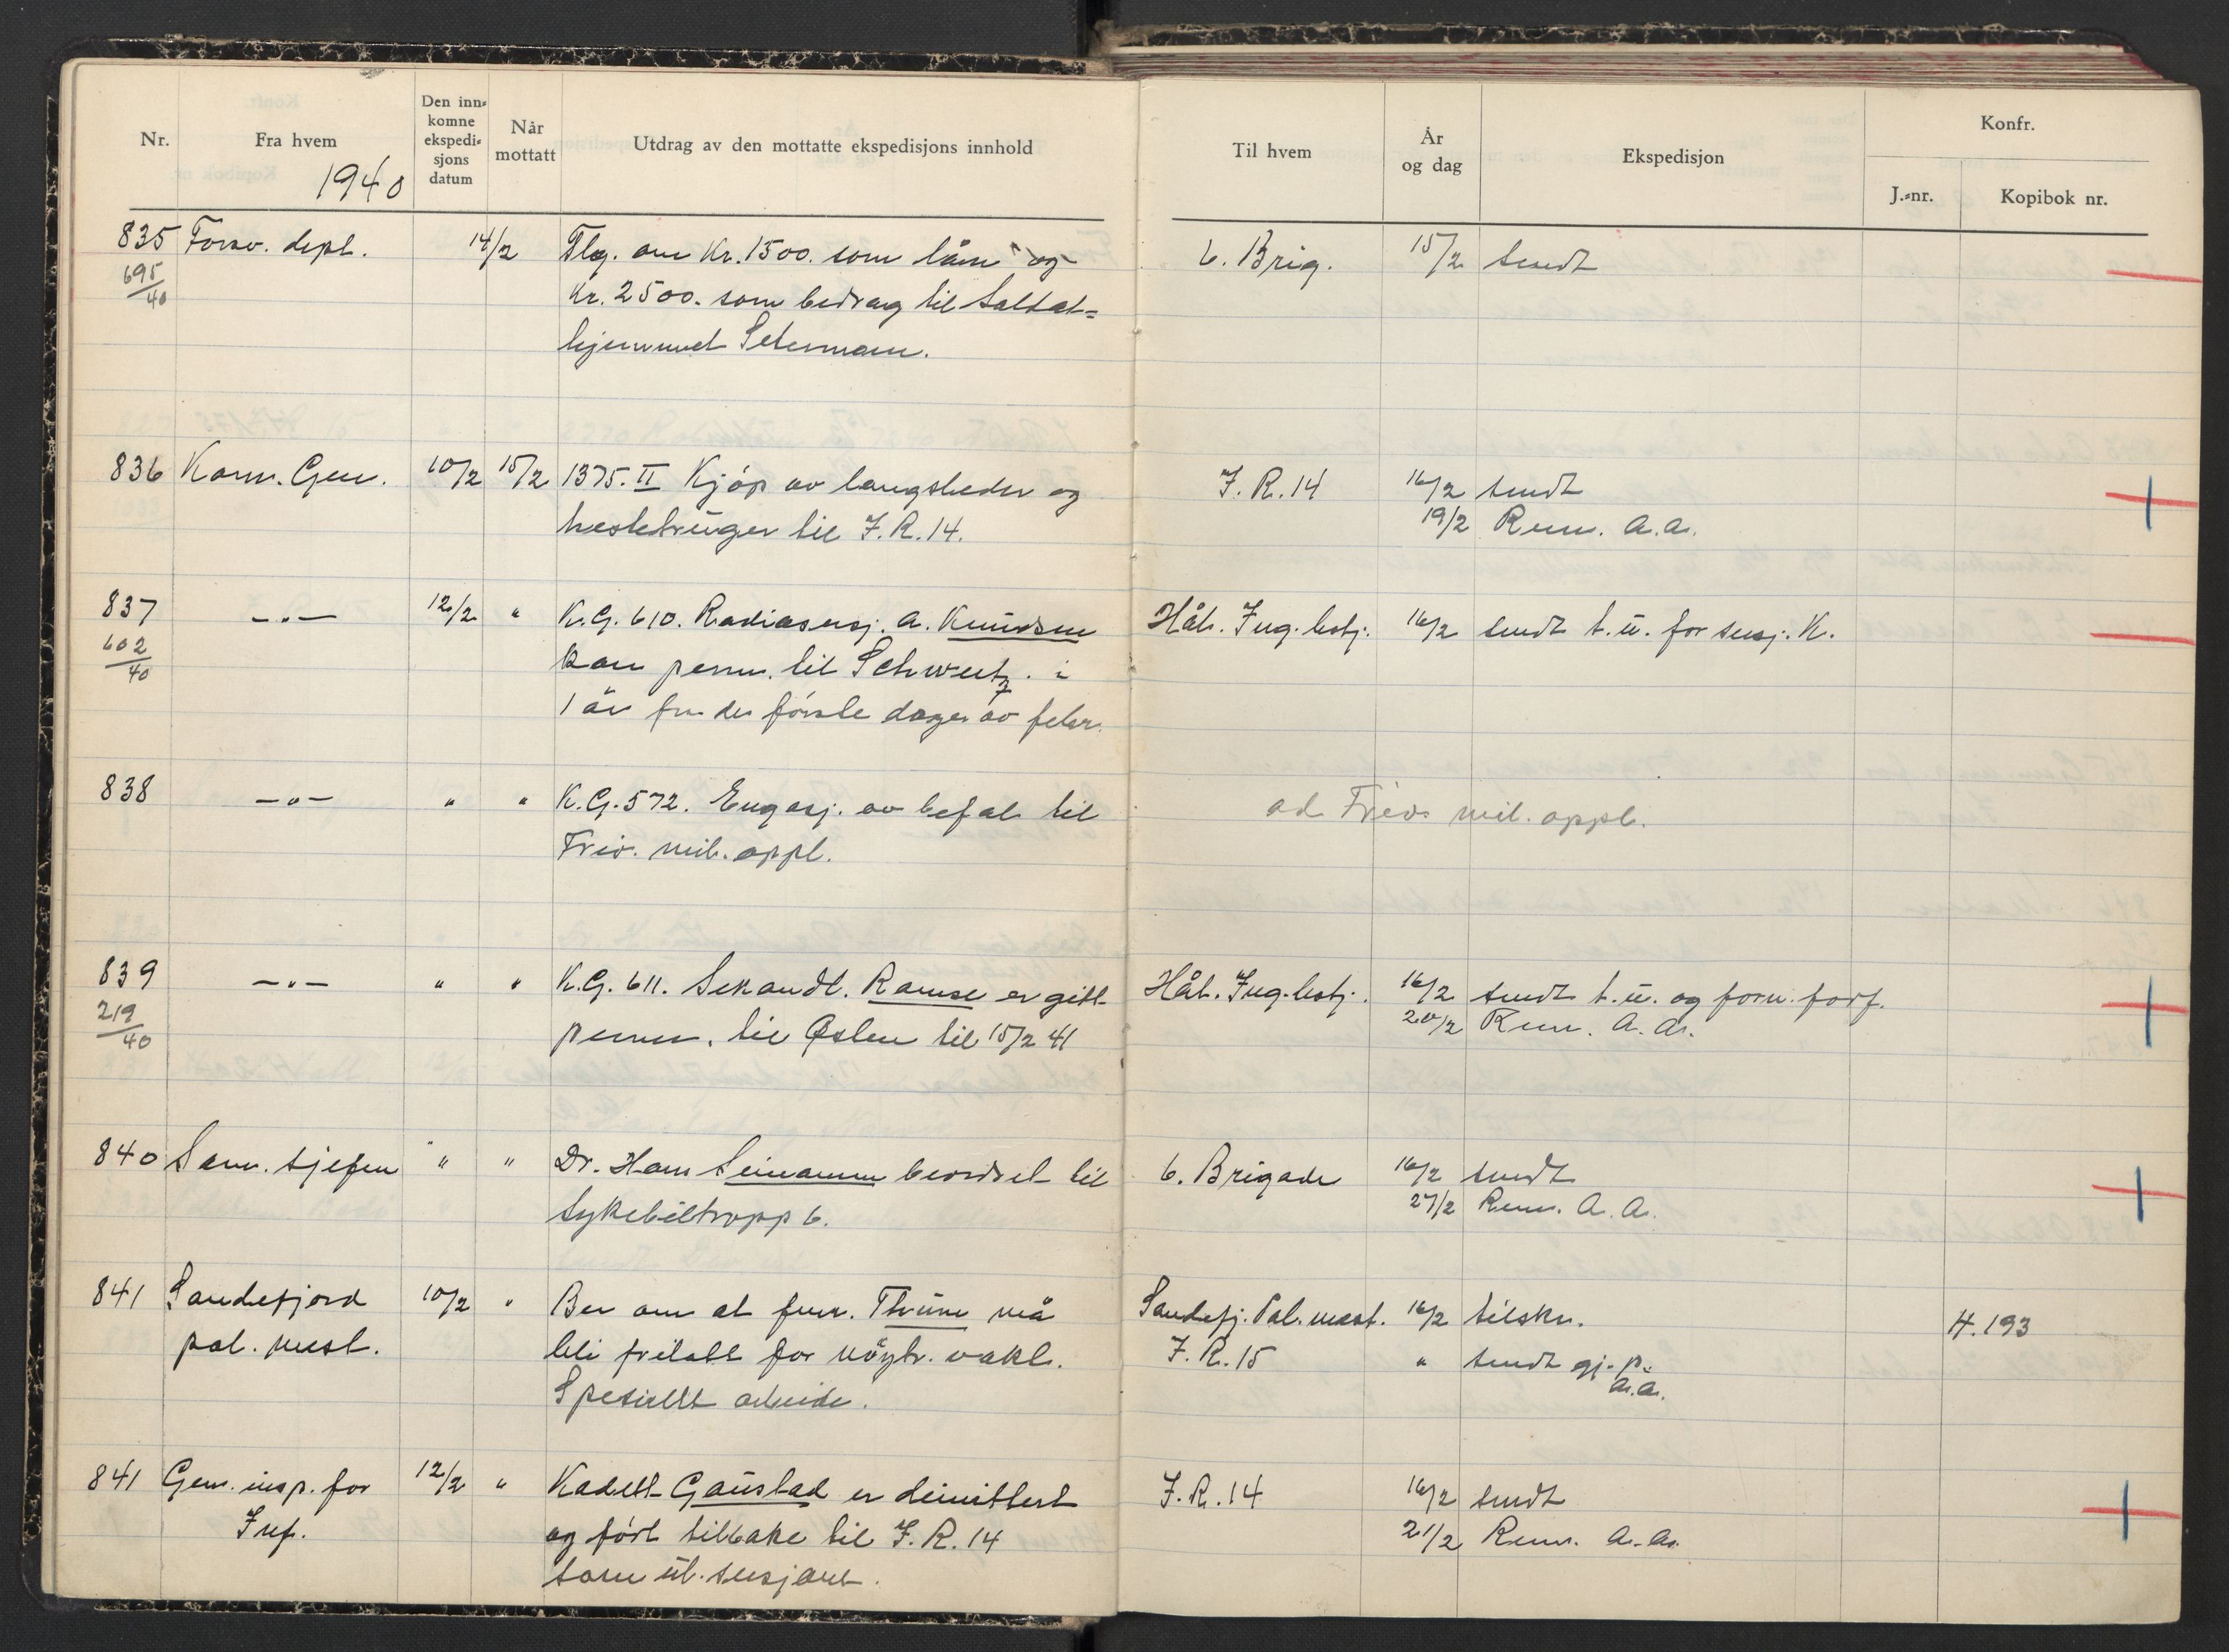 Nr. Fra hvem Den inn= Når Utdrag av den mottatte ekspedisjons innhold Til hvem År Ekspedisjon Konfr.
komne mottatt og dag J.=nr. Kopibok nr.
ekspedi=
sjons
datum
1940
835 Forsv. dept. 14/2 Tlg. om Kr. 1500. som lån og 6. Brig. 15/2 sendt
695/40 Kr. 2500. som bidrag til Soldat=
hjemmet Setermoen.
836 Komm. Gen. 10/2 15/2 1375. II Kjøp av langsleder og I.R. 14 16/2 sendt
hestetruger til I.R. 14. 19/2 Renv. a.a.
837 —"— 12/2 " K.G. 610. Radiosersj. A. Knudsen Hål. Ing. bstj. 16/2 sendt t.u. for sersj. K.
602/40 kan perm. til Schweitz. i
1 år fra de første dager av febr.
838 —"— " " K.G. 572. Engasj. av befal til ad Friv. mil. oppl.
Friv. mil. oppl.
839 —"— " " K.G. 611. Sekondl. Ramse er gitt Hål. Ing. bstj. 16/2 sendt t.u. og forn. forf.
219/40 perm. til Østen til 15/2 41 20/2 Renv. a.a.
840 San. sjefen " " Dr. Hans beordret til 6. Brigade 16/2 sendt
Sykebiltropp 6. 27/2 Renv. a.a.
841 Sandefjord 10/2 " Ber om at fenr. må Sandefj. Pol. mest. 16/2 tilskr. H. 193
pol. mest. bli fritatt for nøytr. vakt. I.R. 15 " sendt gj. p.
Spesiellt arbeide. a.a.
841 Gen. insp. for 12/2 " Kadett Gaustad er dimittert I.R. 14 16/2 sendt
Inf. og ført tilbake til I.R. 14 21/2 Renv. a.a.
som ut. sersjant.